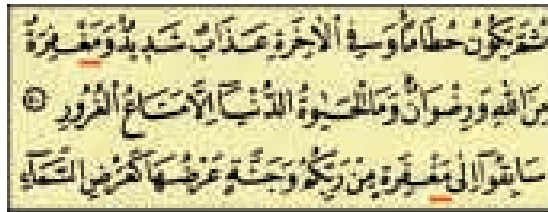 ثُمَّ يَكُونُ حُطَامًا وَفِي الْآخِرَةِ عَذَابٌ شَدِيدٌ وَمَغْفِرَةٌ
مِنَ اللَّهِ وَرِضْوَانٌ وَمَا الْحَيَوٰةُ الدُّنْيَا إِلَّا مَتَاعُ الْغُرُورِ
سَابِقُوا إِلَىٰ مَغْفِرَةٍ مِنْ رَبِّكُمْ وَجَنَّةٍ عَرْضُهَا كَعَرْضِ السَّمَاءِ